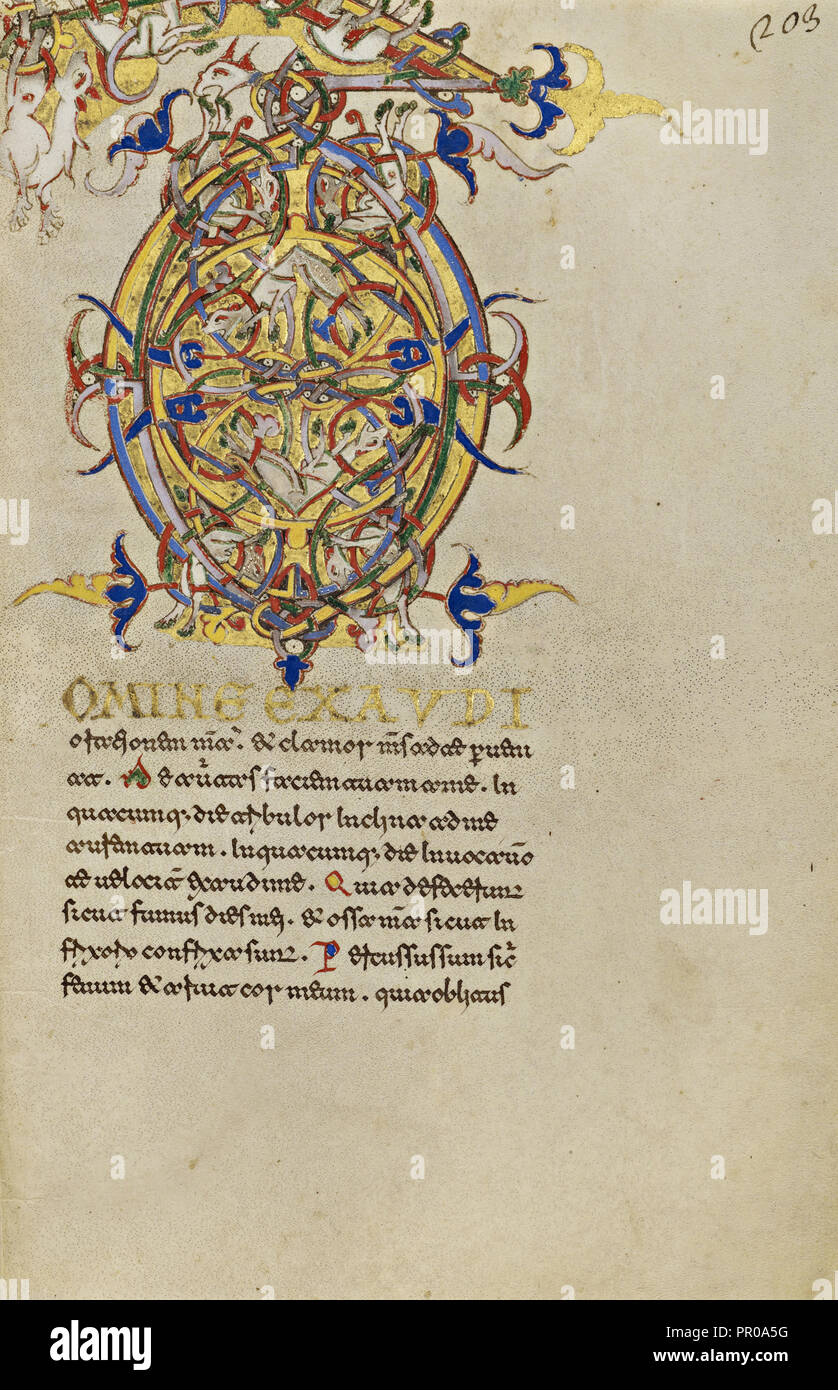 203
OMINE EXAVDI
orationem mēā. & clamor m̄s ad te p̄ueni
at. Ne auertas faciem tuam a me. In
quacumq; die tribulor Inclina ad me
aurem tuam. Inquacumq; die Inuocauero
te uelocit̄ exaudi me. Quia defecerunt
sicut fumus dies mei. & ossa m̄a sicut In
frixorio confrixa sunt. Percussus sum sic̄
fenum & aruit cor meum. quia oblitus
alamy
Image ID: PR0A5G
www.alamy.com